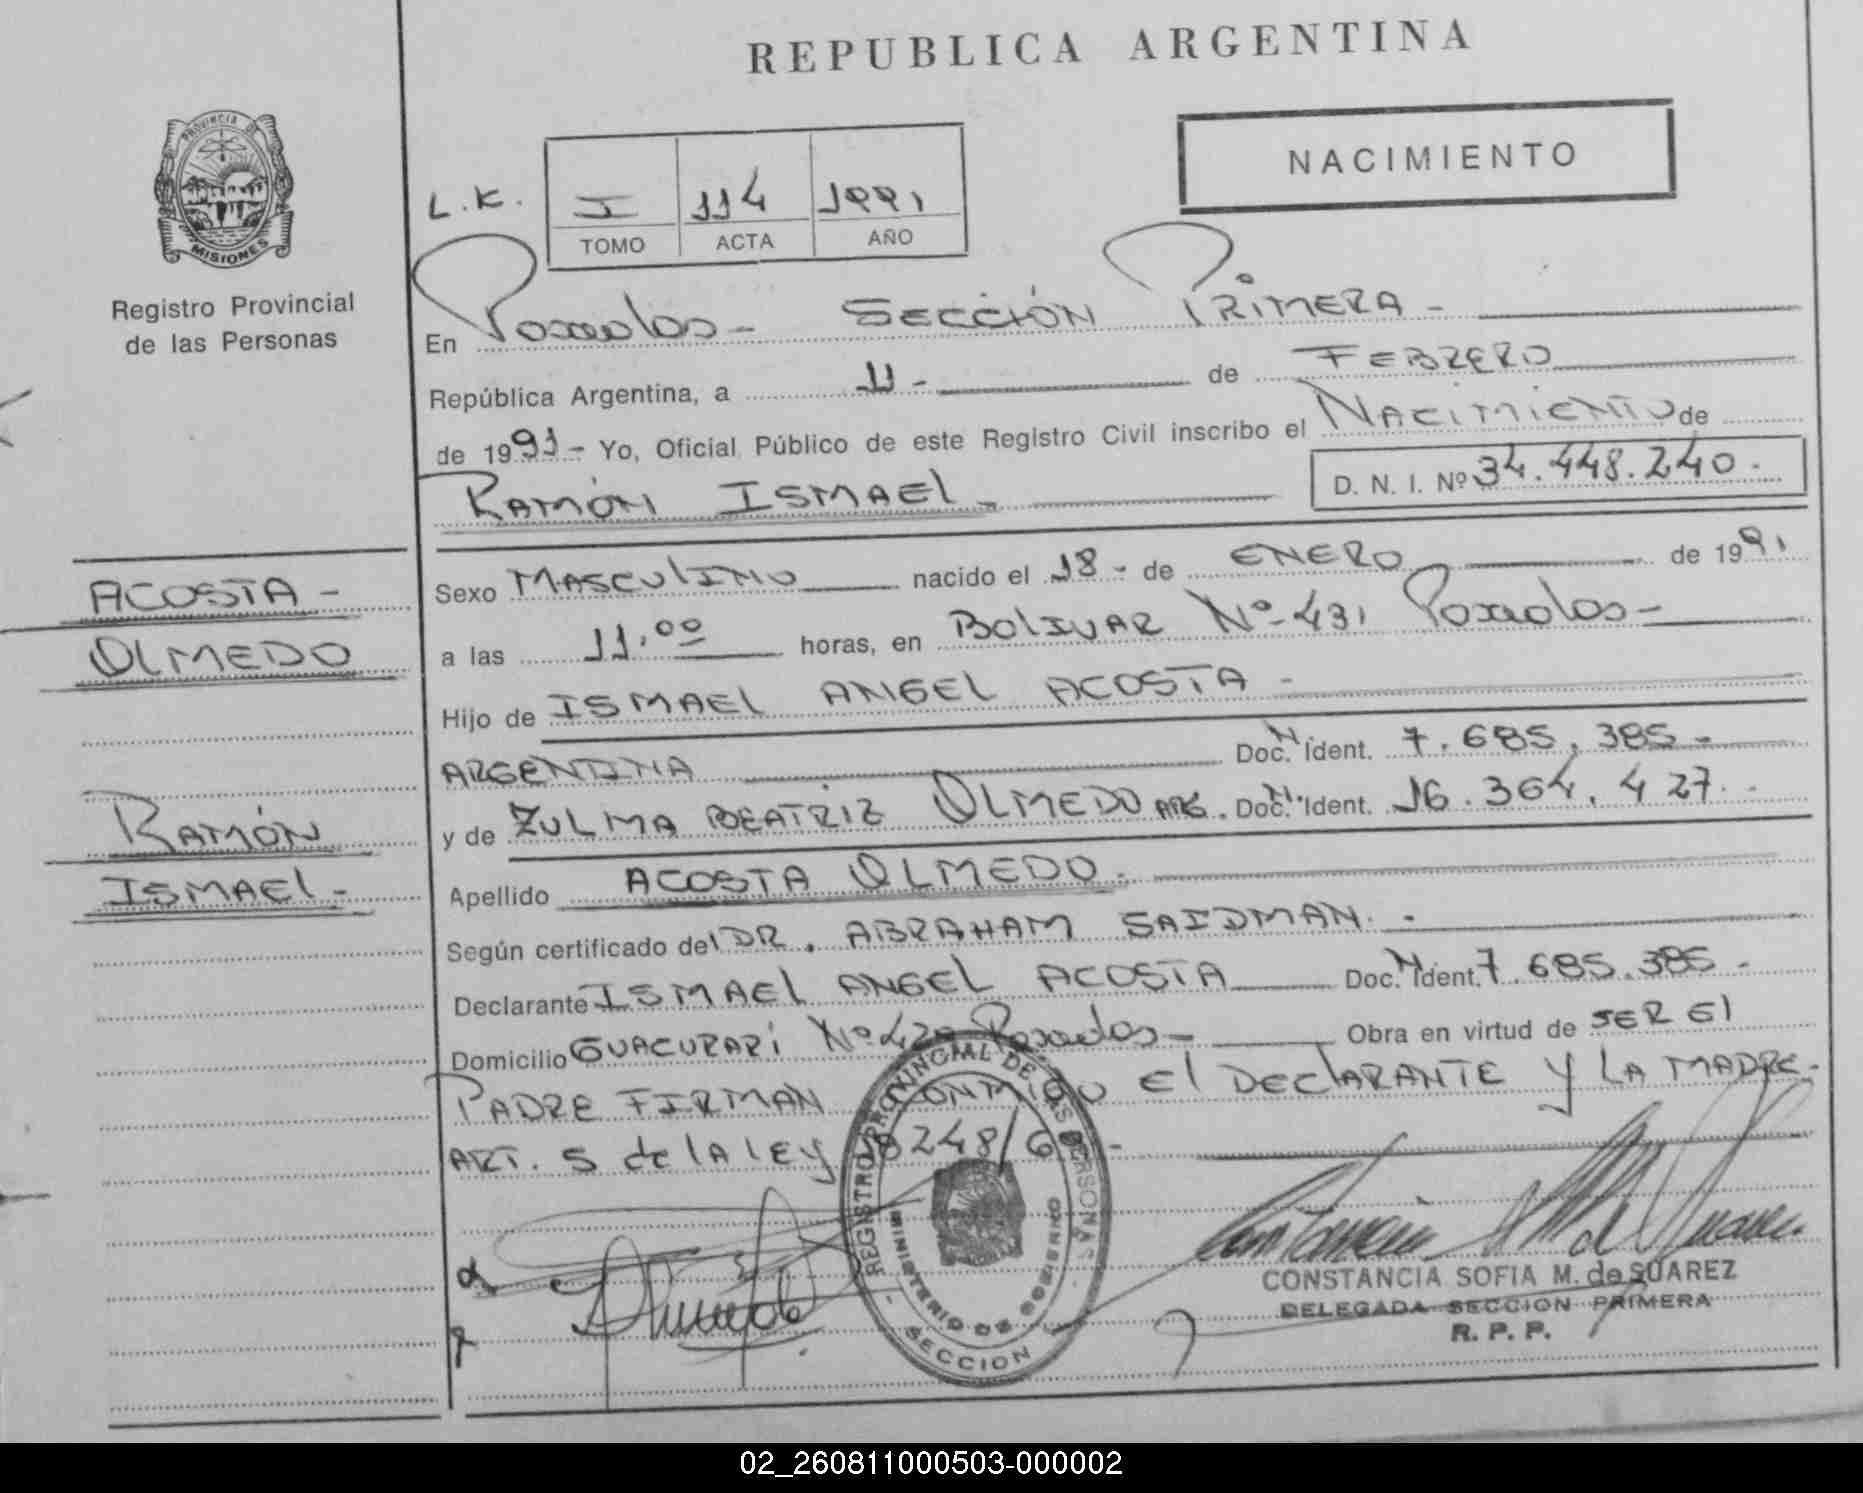 REPUBLICA ARGENTINA
PROVINCIA DE
MISIONES
Registro Provincial
de las Personas
NACIMIENTO
L.K. I 114 1991
TOMO ACTA AÑO
En Posadas - SECCIÓN PRIMERA -
República Argentina, a 11 - de FEBRERO
de 1991 - Yo, Oficial Público de este Registro Civil inscribo el NACIMIENTO de
RAMÓN ISMAEL - D. N. I. Nº 34.448.240.
ACOSTA -
OLMEDO
RAMÓN
ISMAEL -
Sexo MASCULINO nacido el 18 - de ENERO de 1991
a las 11.00 horas, en BOLIVAR Nº 431 Posadas -
Hijo de ISMAEL ANGEL ACOSTA -
ARGENTINA Doc. N. Ident. 7.685.385 -
y de ZULMA BEATRIZ OLMEDO ARG. Doc. N. Ident. 16.364.427.
Apellido ACOSTA OLMEDO.
Según certificado del DR. ABRAHAM SAIDMAN. -
Declarante ISMAEL ANGEL ACOSTA Doc. N Ident. 7.685.385 -
Domicilio GUACURARI Posadas - Obra en virtud de SER El
PADRE FIRMAN CONMIGO El DEClARANTE Y LA MADRE -
ART. 5 de lA lEY 18248/
REGISTRO PROVINCIAL DE LAS PERSONAS
MINISTERIO DE GOBIERNO
SECCION
CONSTANCIA SOFIA M. de SUAREZ
DELEGADA SECCION PRIMERA
R. P. P.
02_260811000503-000002